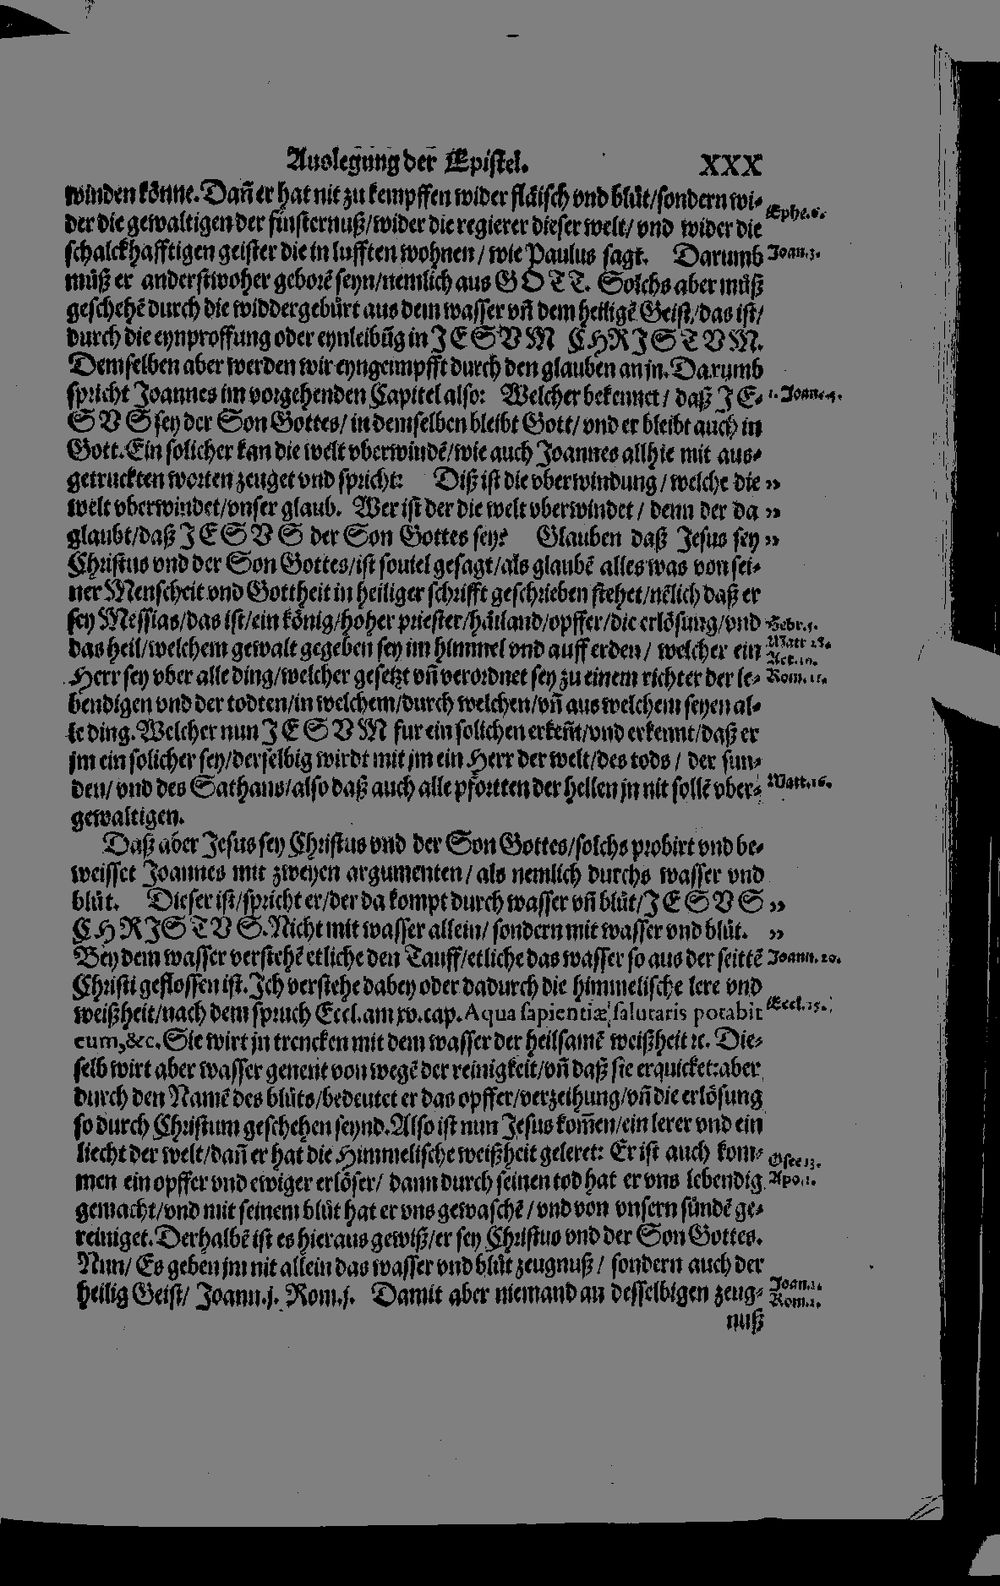 Auslegung der Epistel. XXX
winden könne. Dañ er hat nit zu kempffen wider fläisch vnd blůt/sondern wi-
der die gewaltigen der finsternuß/wider die regierer dieser welt/ vnd wider die
Ephe.6.
schalckhafftigen geister die in lufften wohnen/ wie Paulus sagt. Darumb
Joan.3.
můß er anderstwoher geborē seyn/nemlich aus GOTT. Solchs aber můß
geschehē durch die widdergebůrt aus dem wasser vñ dem heiligē Geist/das ist/
durch die eynproffung oder eynleibūg in JESVM CHRISTVM.
Demselben aber werden wir eyngeimpfft durch den glauben an in. Darumb
spricht Joannes im vorgehenden Capitel also: Welcher bekennet/ daß JE-
1. Joan.4.
SVS sey der Son Gottes/ in demselben bleibt Gott/ vnd er bleibt auch in
Gott. Ein solicher kan die welt vberwindē/wie auch Joannes allhie mit aus-
getruckten worten zeuget vnd spricht: Diß ist die vberwindung/welche die »
welt vberwindet/vnser glaub. Wer ist der die welt vberwindet/ denn der da »
glaubt/daß JESVS der Son Gottes sey? Glauben daß Jesus sey »
Christus vnd der Son Gottes/ist souiel gesagt/als glaubē alles was von sei-
ner Menscheit vnd Gottheit in heiliger schrifft geschrieben stehet/nēlich daß er
sey Messias/das ist/ein könig/hoher priester/häiland/opffer/die erlösung/vnd
Hebr.5.
das heil/welchem gewalt gegeben sey im himmel vnd auff erden/ welcher ein
Matt 28.
Act.10.
Herr sey vber alle ding/welcher gesetzt vñ verordnet sey zu einem richter der le-
Rom.11.
bendigen vnd der todten/in welchem/durch welchen/vñ aus welchem seyen al-
le ding. Welcher nun JESVM fur ein solichen erkeñt/vnd erkennt/daß er
jm ein solicher sey/derselbig wirdt mit jm ein Herr der welt/des tods/ der sun-
den/ vnd des Sathans/also daß auch alle pfortten der hellen jn nit sollē vber-
Matt.16.
gewaltigen.
Daß aber Jesus sey Christus vnd der Son Gottes/solchs probirt vnd be-
weisset Joannes mit zweyen argumenten/ als nemlich durchs wasser vnd
blůt. Dieser ist/spricht er/der da kompt durch wasser vñ blůt/JESVS »
CHRISTVS. Nicht mit wasser allein/ sondern mit wasser vnd blůt. »
Bey dem wasser verstehē etliche den Tauff/etliche das wasser so aus der seittē
Joann.20.
Christi geflossen ist. Ich verstehe dabey oder dadurch die himmelische lere vnd
weißheit/nach dem spruch Eccl. am xv. cap. Aqua sapientiæ salutaris potabit
Eccl.15.
eum, &c. Sie wirt jn trencken mit dem wasser der heilsamē weißheit ꝛc. Die-
selb wirt aber wasser genent von wegē der reinigkeit/vñ daß sie erquicket: aber
durch den Namē des blůts/bedeutet er das opffer/verzeihung/vñ die erlösung
so durch Christum geschehen seynd. Also ist nun Jesus kom̃en/ein lerer vnd ein
liecht der welt/dañ er hat die Himmelische weißheit geleret: Er ist auch kom-
Osee 13.
men ein opffer vnd ewiger erlöser/ dann durch seinen tod hat er vns lebendig
Apo.1.
gemacht/vnd mit seinem blůt hat er vns gewaschē/ vnd von vnsern sündē ge-
reiniget. Derhalbē ist es hieraus gewiß/er sey Christus vnd der Son Gottes.
Nun/ Es geben jm nit allein das wasser vnd blůt zeugnuß/ sondern auch der
heilig Geist/ Joann.j. Rom.j. Damit aber niemand an desselbigen zeug-
Joan.1.
Rom.1.
nuß